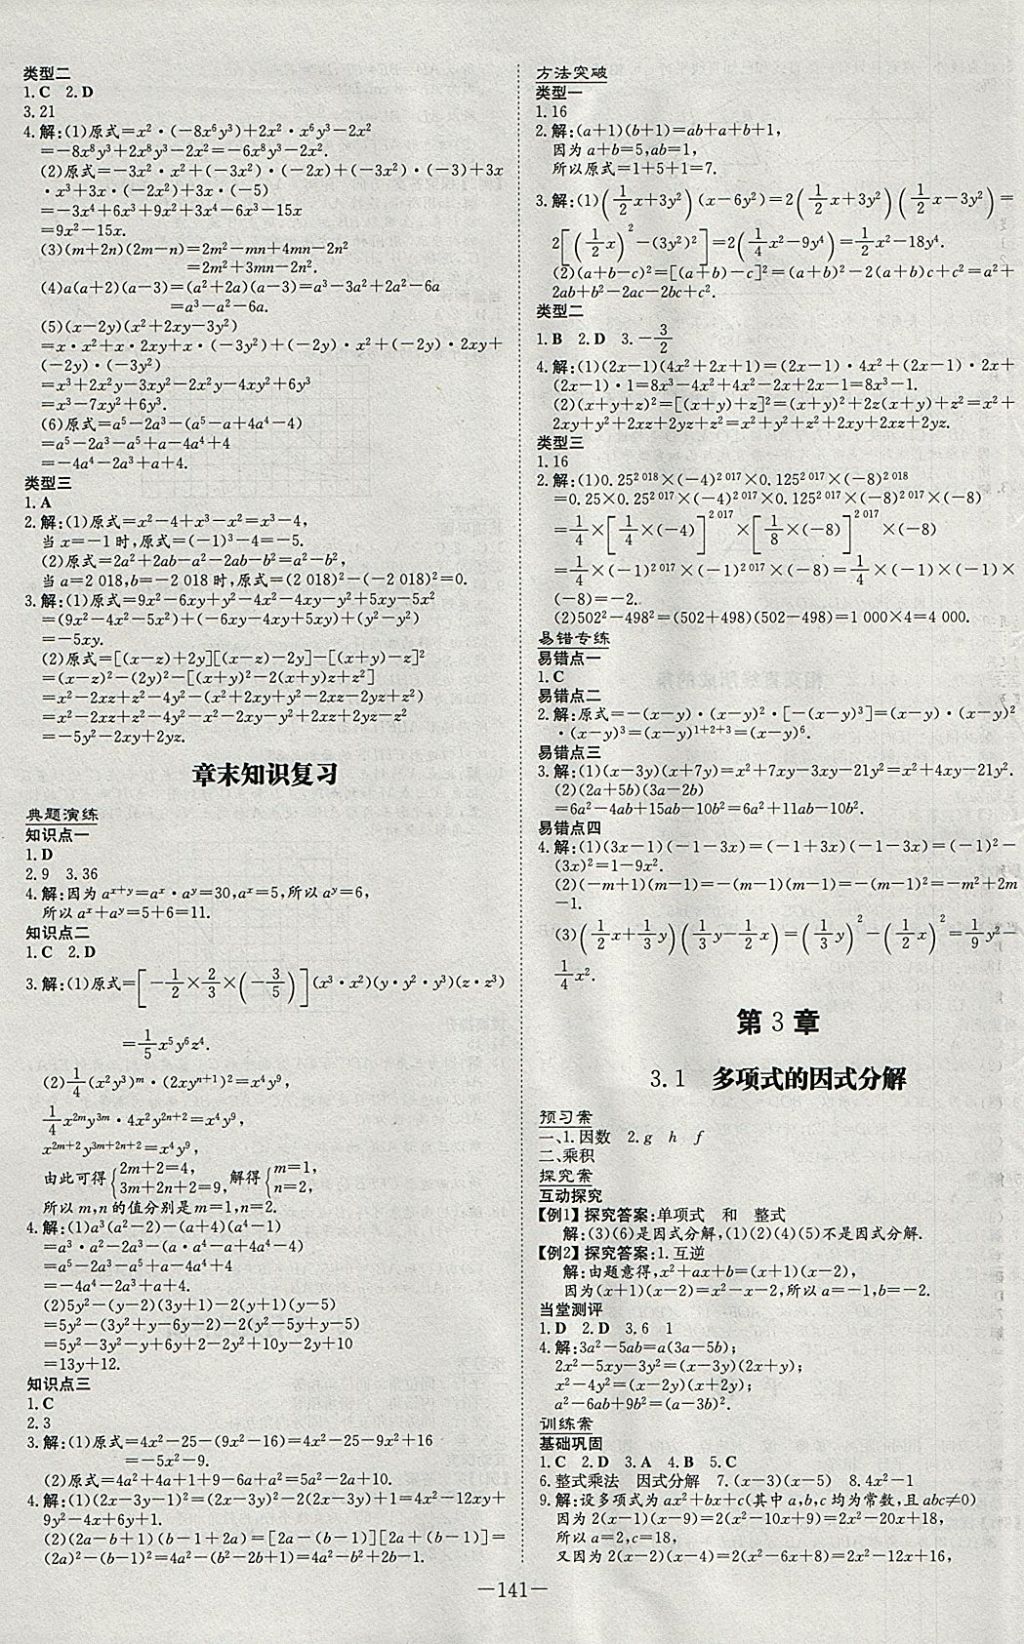 类型二
1.C　2.D
3.21
4.解:(1)原式=x²·(-8x⁶y³)+2x²·x⁶y³-2x²
=-8x⁸y³+2x⁸y³-2x²=-6x⁸y³-2x².
(2)原式=-3x²·x²+(-3x²)·(-2x)+(-3x²)·(-3)+3x
·x³+3x·(-2x²)+3x·(-5)
=-3x⁴+6x³+9x²+3x⁴-6x³-15x
=9x²-15x.
(3)(m+2n)(2m-n)=2m²-mn+4mn-2n²
=2m²+3mn-2n².
(4)a(a+2)(a-3)=(a²+2a)(a-3)=a³-3a²+2a²-6a
=a³-a²-6a.
(5)(x-2y)(x²+2xy-3y²)
=x·x²+x·2xy+x·(-3y²)+(-2y)·x²+(-2y)·2xy+
(-2y)·(-3y²)
=x³+2x²y-3xy²-2x²y-4xy²+6y³
=x³-7xy²+6y³.
(6)原式=a⁵-2a³-(a⁵-a+4a⁴-4)
=a⁵-2a³-a⁵+a-4a⁴+4
=-4a⁴-2a³+a+4.
类型三
1.A
2.解:(1)原式=x²-4+x³-x²=x³-4,
当x=-1时,原式=(-1)³-4=-5.
(2)原式=2a²+2ab-a²-2ab-b²=a²-b²,
当a=2 018,b=-2 018时,原式=(2 018)²-(-2 018)²=0.
3.解:(1)原式=9x²-6xy+y²-4x²-4xy-y²+5xy-5x²
=(9x²-4x²-5x²)+(-6xy-4xy+5xy)+(y²-y²)
=-5xy.
(2)原式=[(x-z)+2y][(x-z)-2y]-[(x+y)-z]²
=(x-z)²-(2y)²-[(x+y)²-2(x+y)z+z²]
=x²-2xz+z²-4y²-(x²+2xy+y²-2xz-2yz+z²)
=x²-2xz+z²-4y²-x²-2xy-y²+2xz+2yz-z²
=-5y²-2xy+2yz.
章末知识复习
典题演练
知识点一
1.D
2.9　3.36
4.解:因为aˣ⁺ʸ=aˣ·aʸ=30,aˣ=5,所以aʸ=6,
所以aˣ+aʸ=5+6=11.
知识点二
1.C　2.D
3.解:(1)原式=[-1/2×2/3×(-3/5)](x³·x²)(y·y²·y³)(z·z³)
=1/5x⁵y⁶z⁴.
(2)1/4(x²y³)ᵐ·(2xyⁿ⁺¹)²=x⁴y⁹,
1/4x²ᵐy³ᵐ·4x²y²ⁿ⁺²=x⁴y⁹,
x²ᵐ⁺²y³ᵐ⁺²ⁿ⁺²=x⁴y⁹,
由此可得{2m+2=4, 3m+2n+2=9, 解得{m=1, n=2,
所以m,n的值分别是m=1,n=2.
4.解:(1)a³(a²-2)-(a+4)(a⁴-1)
=a³·a²-2a³-(a·a⁴-a+4a⁴-4)
=a⁵-2a³-a⁵+a-4a⁴+4
=-4a⁴-2a³+a+4.
(2)5y²-(y-2)(3y+1)-2(y+1)(y-5)
=5y²-(3y²+y-6y-2)-2(y²-5y+y-5)
=5y²-3y²-y+6y+2-2y²+10y-2y+10
=13y+12.
知识点三
1.C
2.3
3.解:(1)原式=4x²-25-(9x²-16)=4x²-25-9x²+16
=-5x²-9.
(2)原式=4a²+4a+1+9-6a+a²=5a²-2a+10.
4.解:(1)(2x-3y-1)²=(2x-3y)²-2(2x-3y)+1=4x²-12xy+
9y²-4x+6y+1.
(2)(2a-b+1)(b-1+2a)=[2a-(b-1)][2a+(b-1)]=
(2a)²-(b-1)²=4a²-(b²-2b+1)=4a²-b²+2b-1.
方法突破
类型一
1.16
2.解:(a+1)(b+1)=ab+a+b+1,
因为a+b=5,ab=1,
所以原式=1+5+1=7.
3.解:(1)(1/2x+3y²)(x-6y²)=2(1/2x+3y²)(1/2x-3y²)=
2[(1/2x)²-(3y²)²]=2(1/4x²-9y⁴)=1/2x²-18y⁴.
(2)(a+b-c)²=[(a+b)-c]²=(a+b)²-2(a+b)c+c²=a²+
2ab+b²-2ac-2bc+c².
类型二
1.B　2.D　3.-3/2
4.解:(1)(2x-1)(4x²+2x+1)=(2x-1)·4x²+(2x-1)·2x+
(2x-1)·1=8x³-4x²+4x²-2x+2x-1=8x³-1.
(2)(x+y+z)²=[(x+y)+z]²=(x+y)²+2z(x+y)+z²=x²+
2xy+y²+2xz+2yz+z²=x²+y²+z²+2xy+2xz+2yz.
类型三
1.16
2.解:(1)0.25²⁰¹⁸×(-4)²⁰¹⁷×0.125²⁰¹⁷×(-8)²⁰¹⁸
=0.25×0.25²⁰¹⁷×(-4)²⁰¹⁷×0.125²⁰¹⁷×(-8)²⁰¹⁷×(-8)
=1/4×[1/4×(-4)]²⁰¹⁷×[1/8×(-8)]²⁰¹⁷×(-8)
=1/4×(-1)²⁰¹⁷×(-1)²⁰¹⁷×(-8)=1/4×(-1)×(-1)×
(-8)=-2.
(2)502²-498²=(502+498)(502-498)=1 000×4=4 000.
易错专练
易错点一
1.C
易错点二
2.解:原式=-(x-y)·(x-y)²·[-(x-y)³]=(x-y)·(x-y)²
·(x-y)³=(x-y)¹⁺²⁺³=(x-y)⁶.
易错点三
3.解:(1)(x-3y)(x+7y)=x²+7xy-3xy-21y²=x²+4xy-21y².
(2)(2a+5b)(3a-2b)
=6a²-4ab+15ab-10b²=6a²+11ab-10b².
易错点四
4.解:(1)(3x-1)(-1-3x)=(-1+3x)(-1-3x)=(-1)²-
(3x)²=1-9x².
(2)(-m+1)(m-1)=-(m-1)(m-1)=-(m-1)²=-m²+2m
-1.
(3)(1/2x+1/3y)(1/3y-1/2x)=(1/3y)²-(1/2x)²=1/9y²-
1/4x².
第3章
3.1　多项式的因式分解
预习案
一、1.因数　2.g　h　f
二、乘积
探究案
互动探究
【例1】探究答案:单项式　和　整式
解:(3)(6)是因式分解,(1)(2)(4)(5)不是因式分解.
【例2】探究答案:1.互逆
解:由题意得,x²+ax+b=(x+1)(x-2),
因为(x+1)(x-2)=x²-x-2,所以a=-1,b=-2.
当堂测评
1.D　2.D　3.6　1
4.解:3a²-5ab=a(3a-5b);
2x²-5xy-3y²=(x-3y)(2x+y);
x²-4y²=(x-2y)(x+2y);
a²-6ab+9b²=(a-3b)².
训练案
基础巩固
1.C　2.D　3.A　4.B　5.C
6.整式乘法　因式分解　7.(x-3)(x-5)　8.4x²-1
9.解:设多项式为ax²+bx+c(其中a,b,c均为常数,且abc≠0)
因为2(x-1)(x-9)=2(x²-10x+9)=2x²-20x+18,
所以a=2,c=18,
又因为2(x-2)(x-4)=2(x²-6x+8)=2x²-12x+16,
—141—